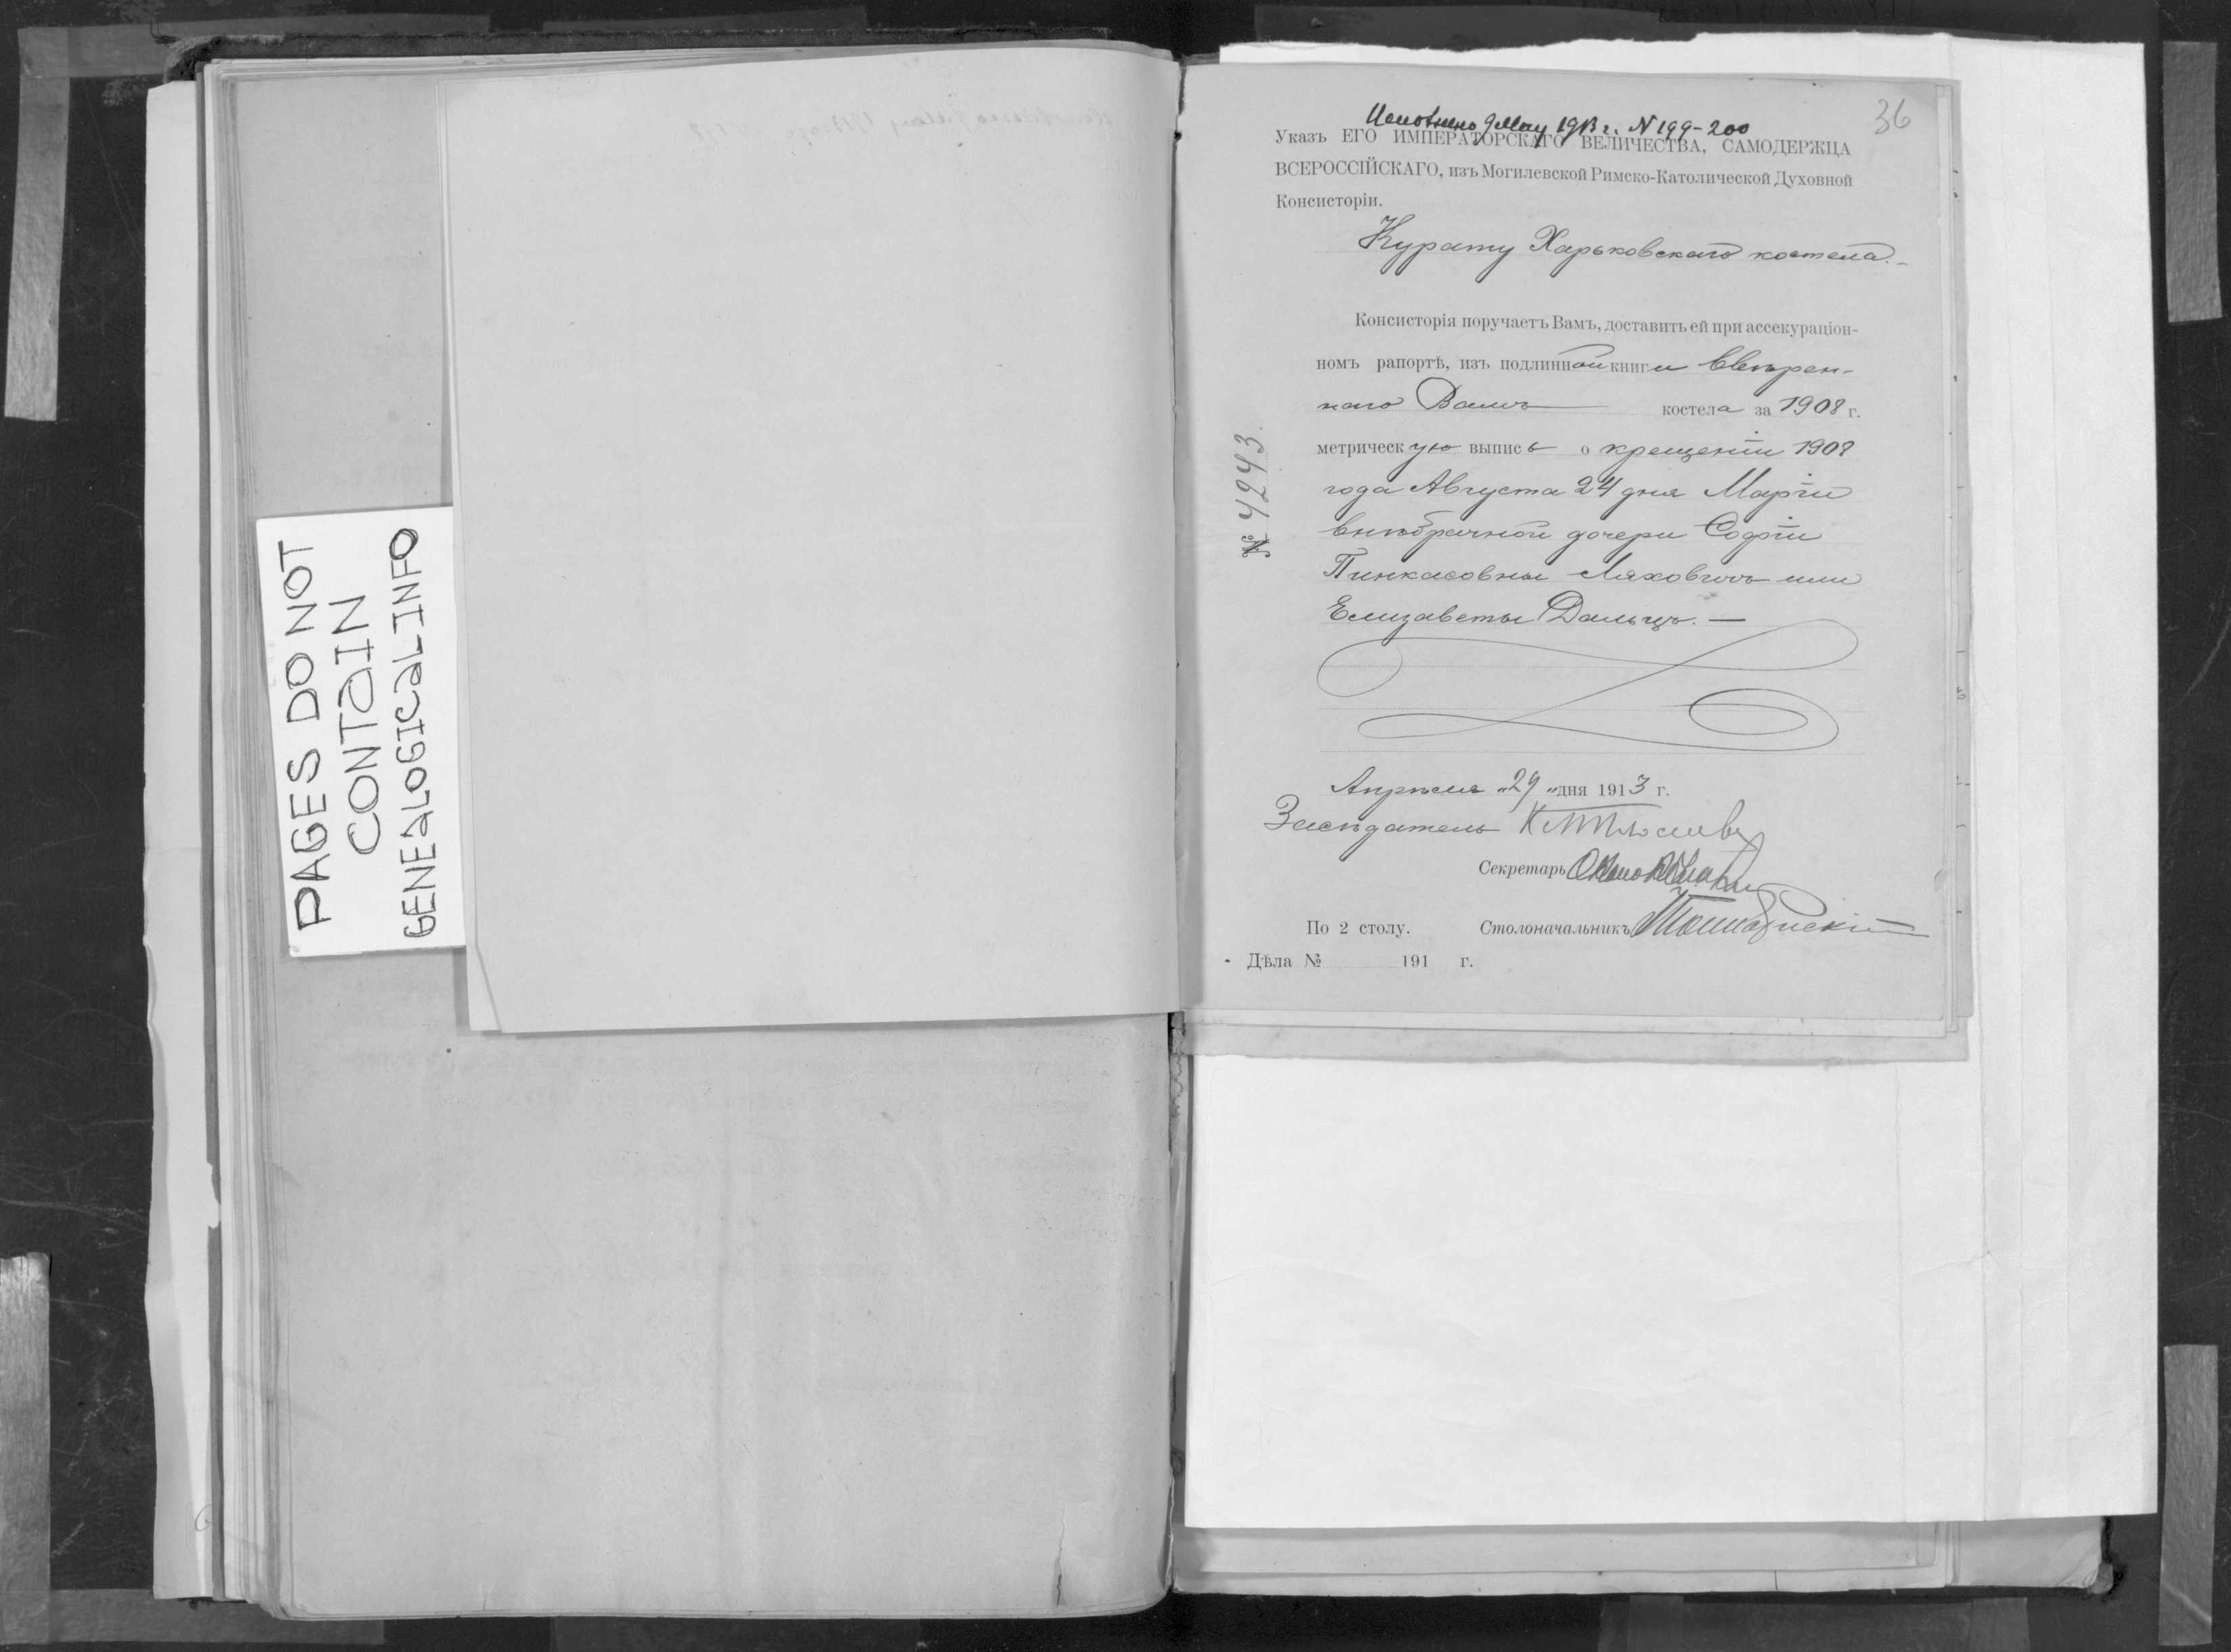 PAGES DO NOT
CONTAIN
GENEALOGICAL INFO
36
Исполнено 9 Мау 1913 г. N 199-200
Указъ ЕГО ИМПЕРАТОРСКАГО ВЕЛИЧЕСТВА, САМОДЕРЖЦА
ВСЕРОССІЙСКАГО, изъ Могилевской Римско-Католической Духовной
Консисторіи.
Курату Харьковскаго костела.-
Консисторія поручаетъ Вамъ, доставить ей при ассекураціон-
номъ рапортѣ, изъ подлинной книги ввѣрен-
наго Вамъ костела за 1908 г.
№ 4243.
метрическую выпись о крещеніи 1908
года Августа 24 дня Маріи
внѣбрачной дочери Софіи
Пинкасовны Ляховичъ или
Елизаветы Дальцъ. —
Апрѣля „29 „ дня 1913 г.
Засѣдатель
Секретарь
По 2 столу. Столоначальникъ
Дѣла № 191 г.